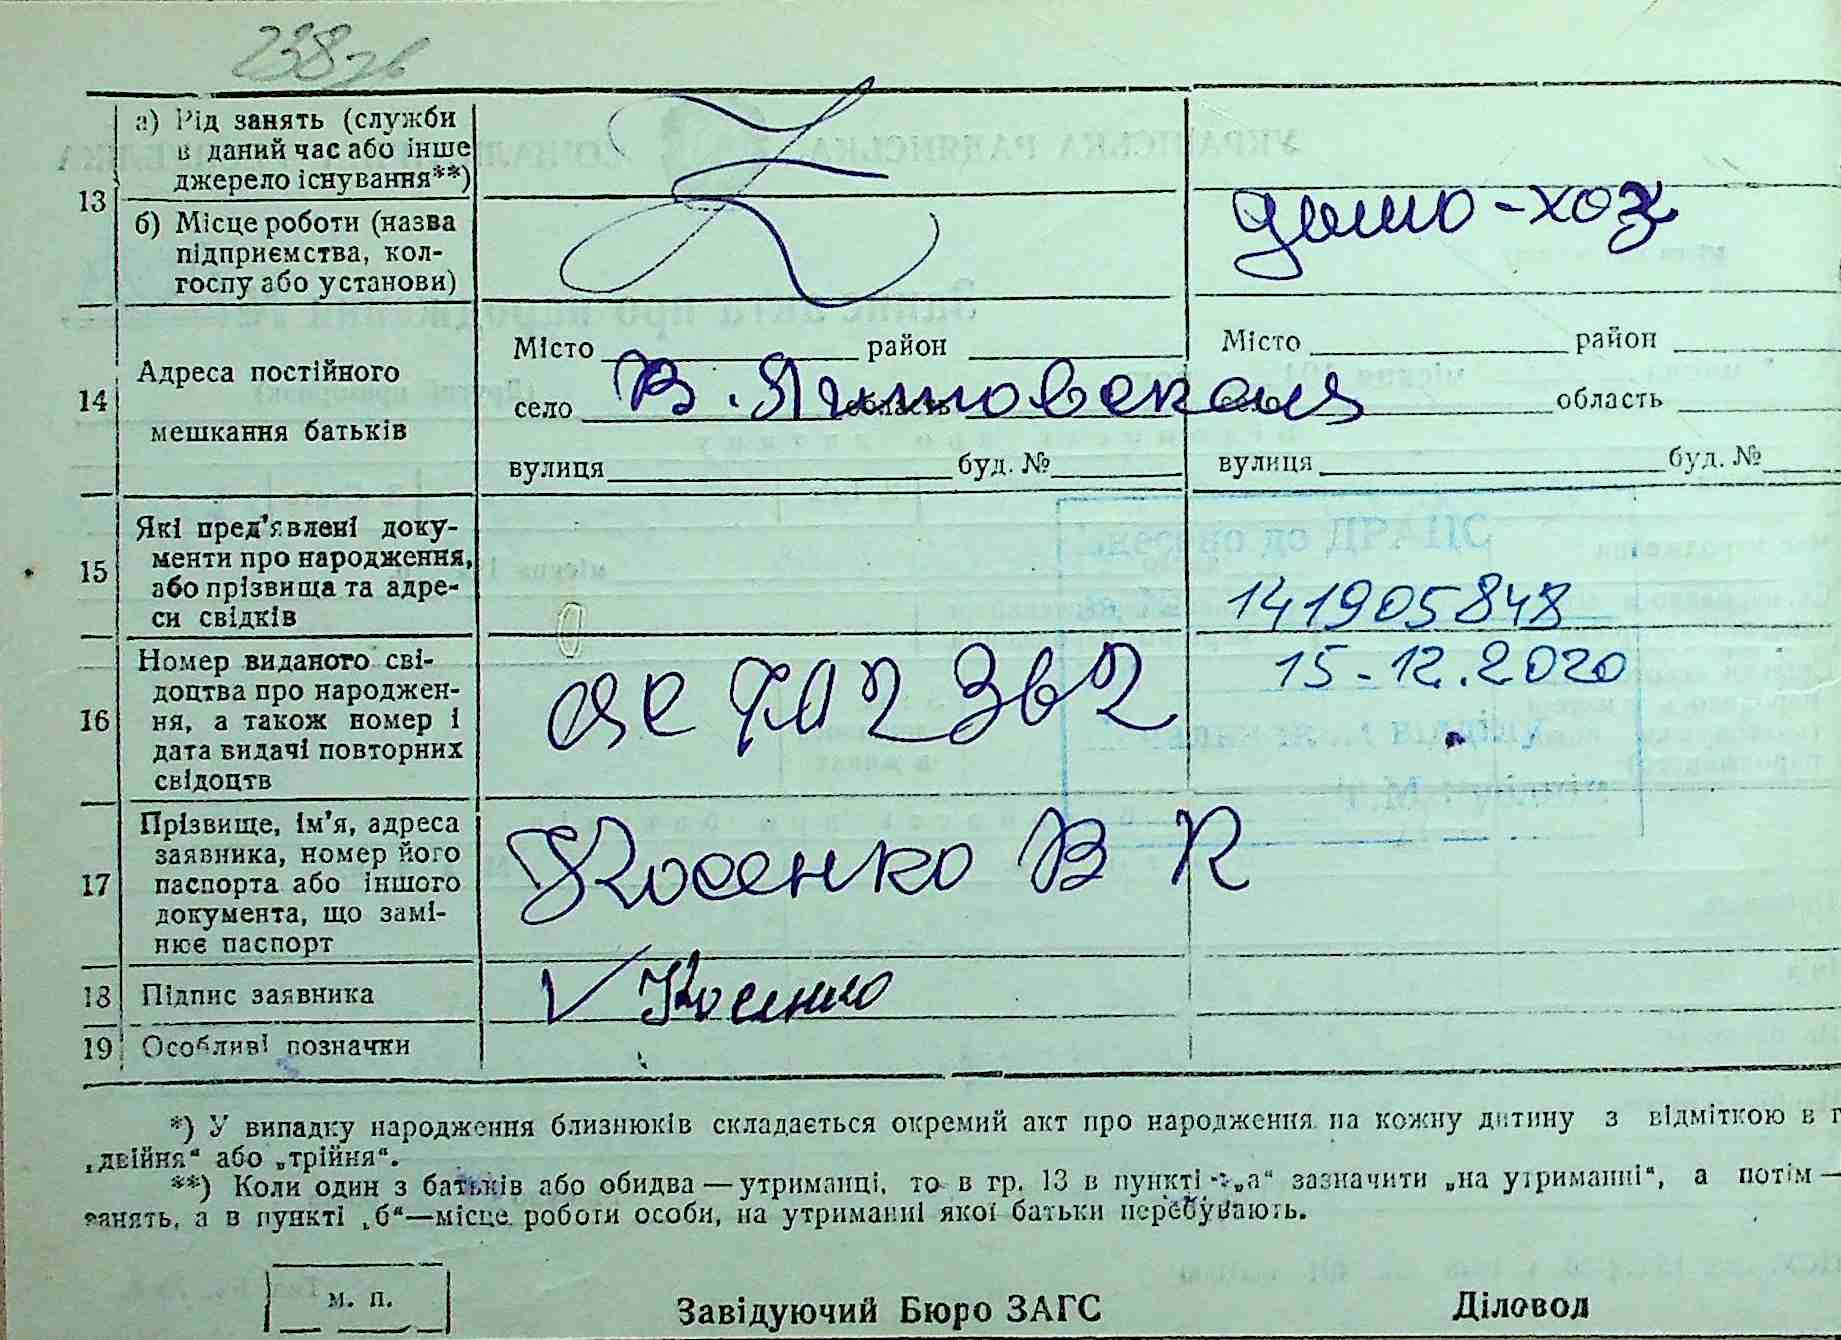 238зв
а) Рід занять (служби
в даний час або інше
джерело існування**)
13
б) Місце роботи (назва
підприємства, кол-
госпу або установи)
домо-хоз
14
Адреса постійного
мешкання батьків
Місто район
село область
вулиця буд. №
В.
Місто район
село область
вулиця буд. №
15
Які пред'явлені доку-
менти про народження,
або прізвища та адре-
си свідків
141905848
16
Номер виданого сві-
доцтва про народжен-
ня, а також номер і
дата видачі повторних
свідоцтв
15-12.2020
17
Прізвище, ім'я, адреса
заявника, номер його
паспорта або іншого
документа, що замі-
нює паспорт
Косенко В К
18
Підпис заявника
Косенко
19
Особливі позначки
*) У випадку народження близнюків складається окремий акт про народження на кожну дитину з відміткою в г
„двійня“ або „трійня“.
**) Коли один з батьків або обидва — утриманці, то в гр. 13 в пункті „а“ зазначити „на утриманні“, а потім —
занять, а в пункті „б“—місце роботи особи, на утриманні якої батьки перебувають.
м. п.
Завідуючий Бюро ЗАГС
Діловод